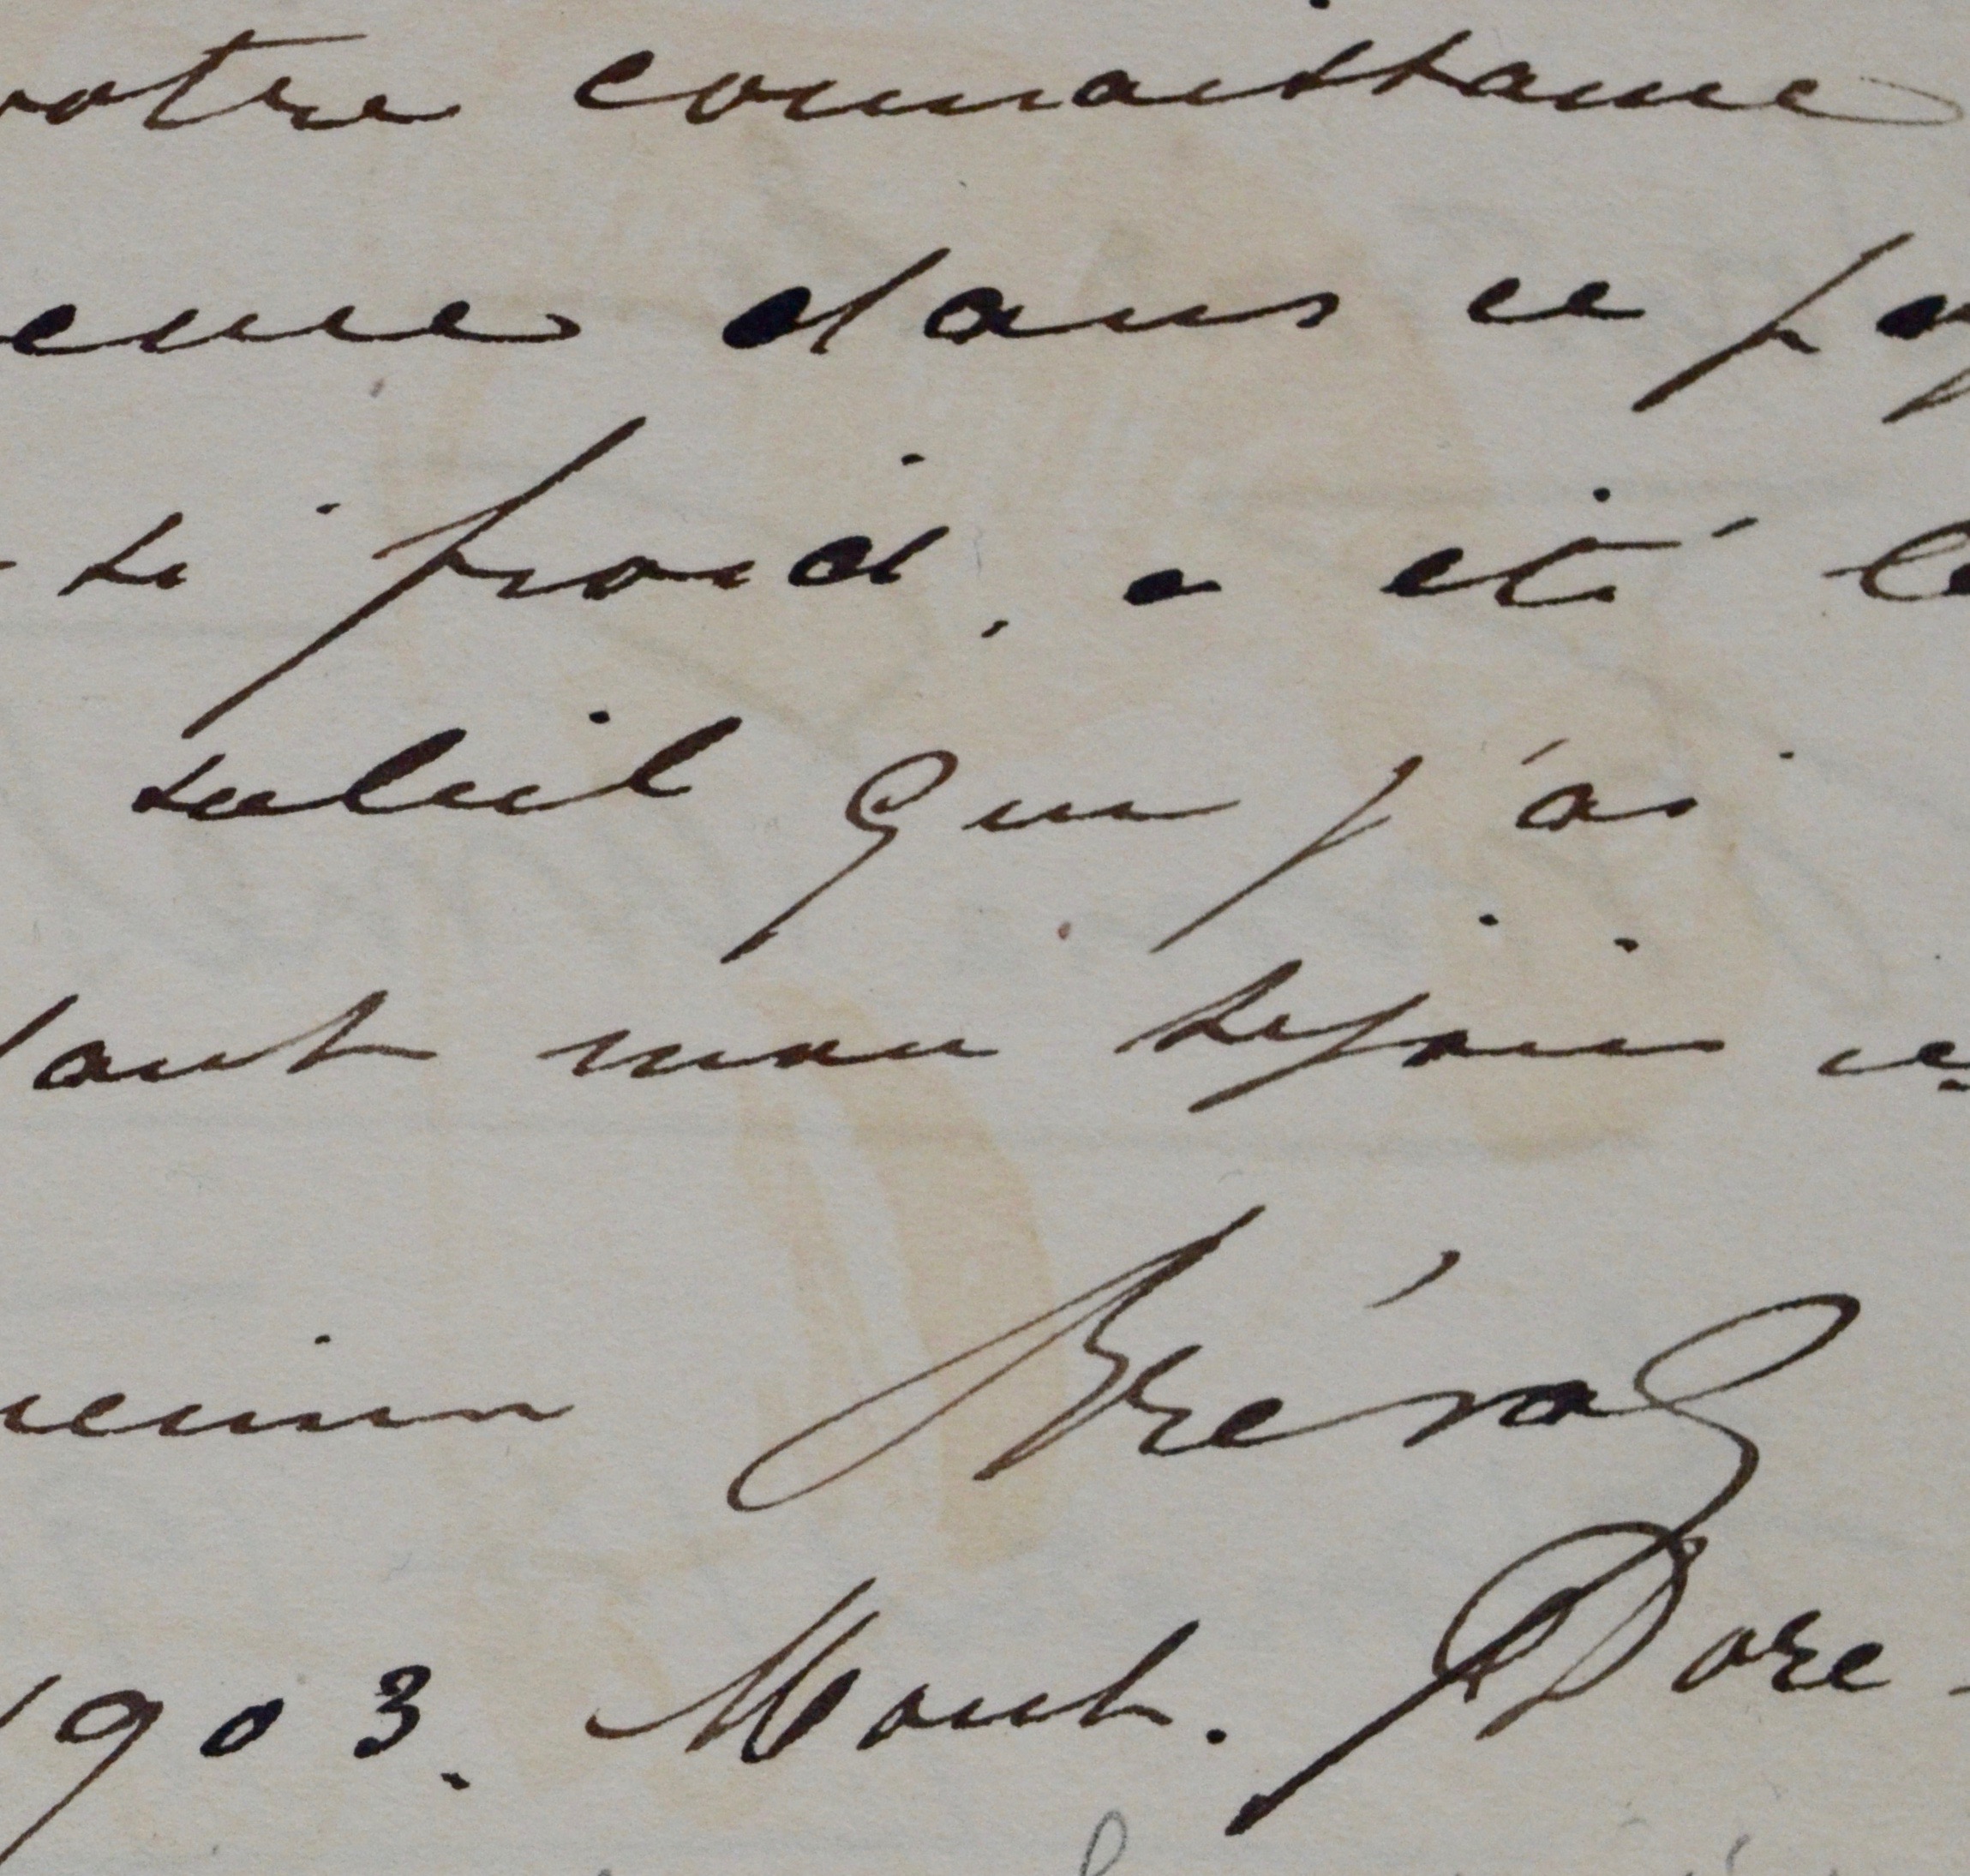 votre connaissance
dans ce pay
si froid, a été le
soleil que j'ai
dant mon séjour ici
Bréval
1903. Mont. Dore -